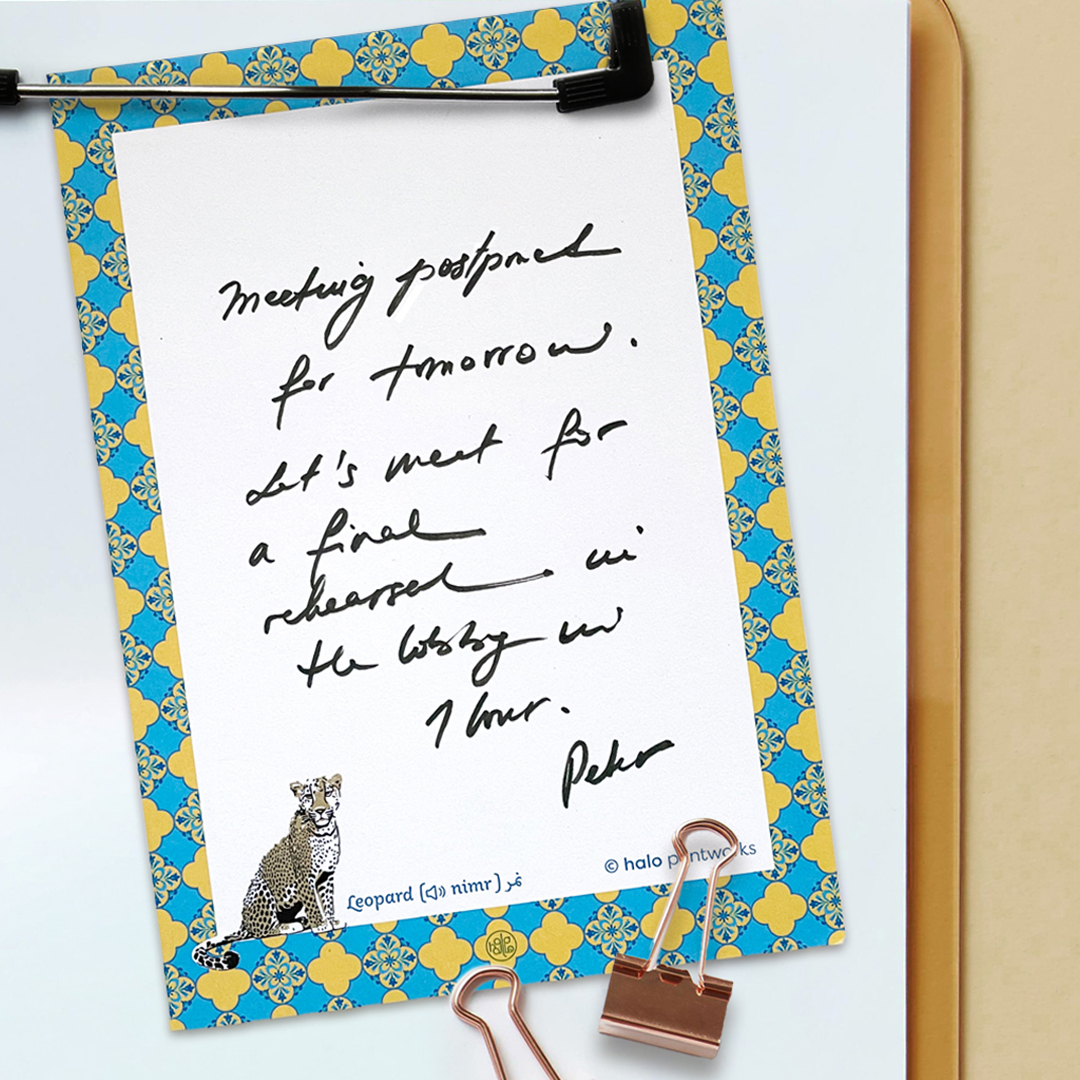 Meeting postponed
for tomorrow.
Let's meet for
a final
rehearsal in
the lobby in
1 hour.
Peter
© halo printworks
Leopard [ nimr ] نمر
halo